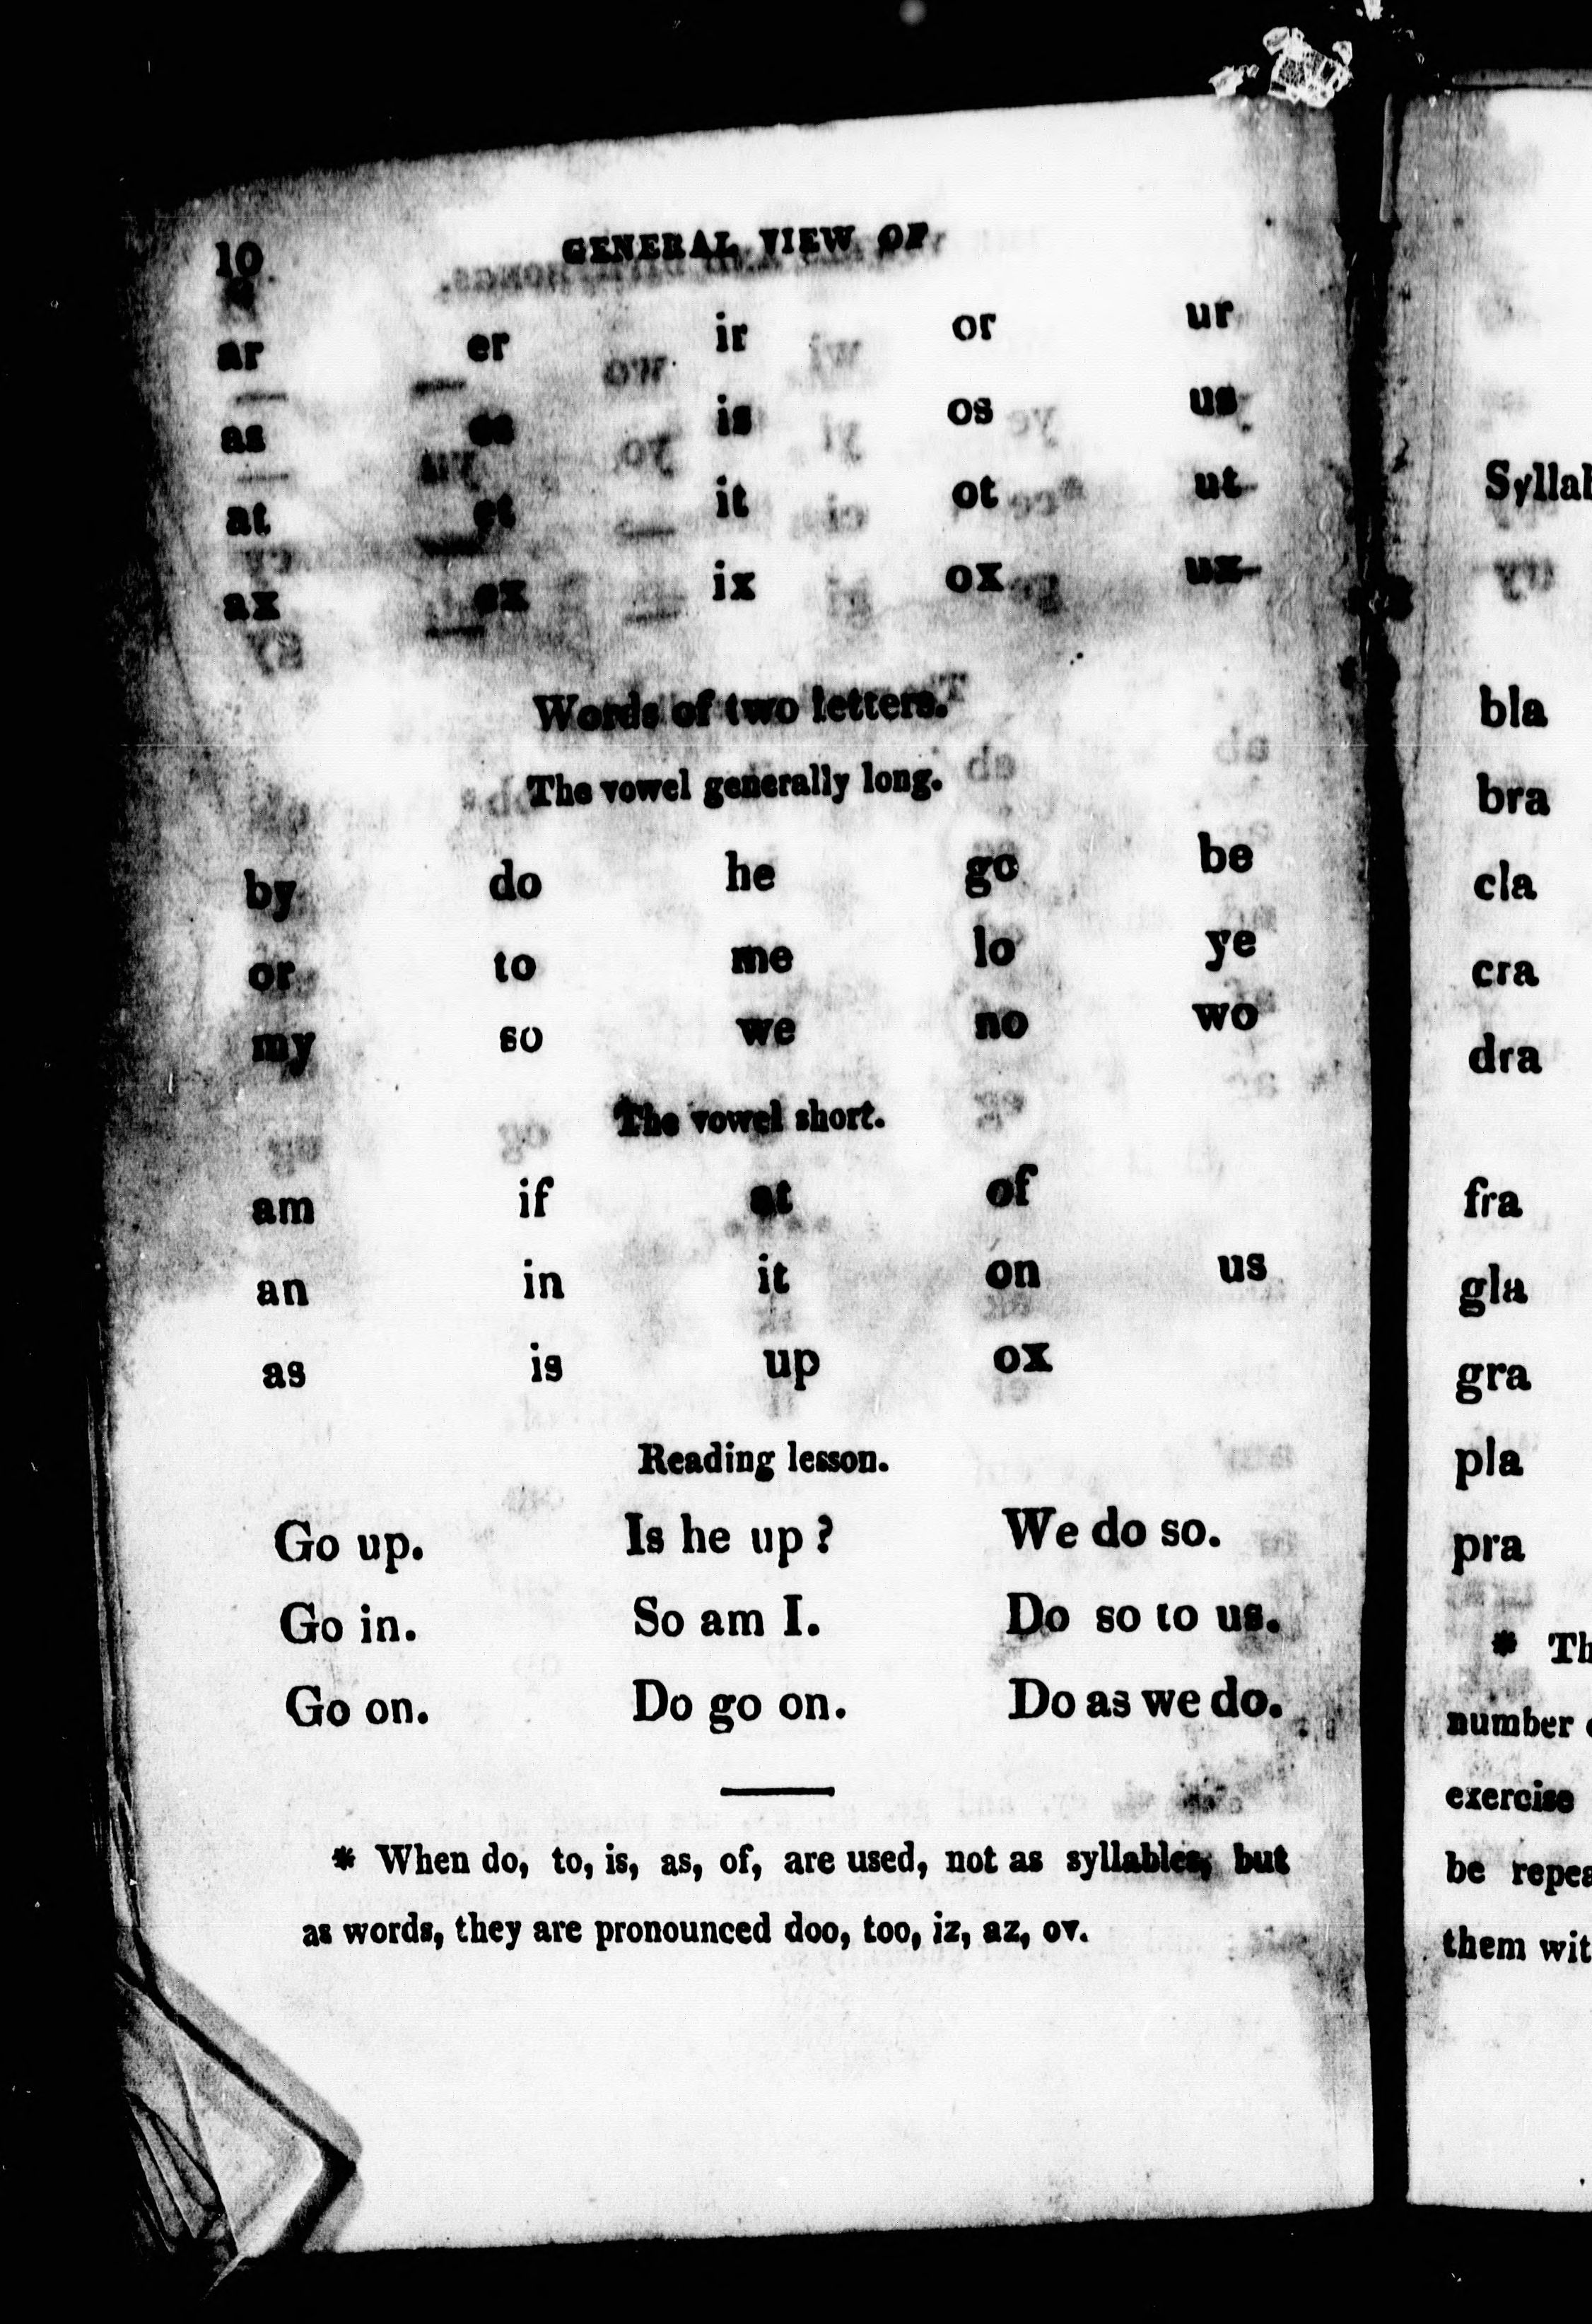 10 GENERAL VIEW OF
ar er ir or ur
as es is os us
at et it ot ut
ax ex ix ox ux
Words of two letters.
The vowel generally long.
by do he go be
or to me lo ye
my so we no wo
The vowel short.
am if at of
an in it on us
as is up ox
Reading lesson.
Go up. Is he up? We do so.
Go in. So am I. Do so to us.
Go on. Do go on. Do as we do.
* When do, to, is, as, of, are used, not as syllables, but
as words, they are pronounced doo, too, iz, az, ov.
bla
bra
cla
cra
dra
fra
gla
gra
pla
pra
*
number
exercise
be
them